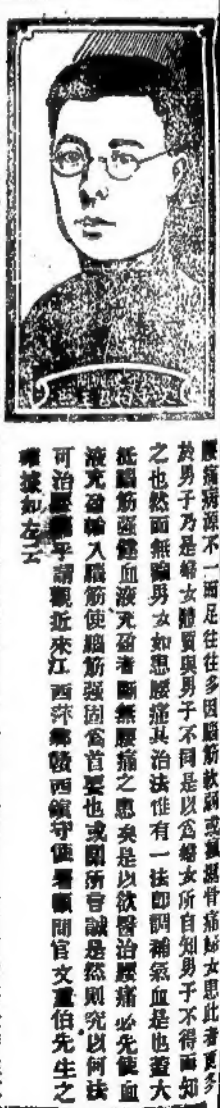 腰痛病源不一而足往往多因腦筋軟弱或風濕骨痛婦女患此者更多
於男子乃是婦女體質與男子不同是以爲婦女所自知男子不得而知
之也然而無論男女如患腰痛其治法惟有一法卽調補氣血是也蓋大
低腦筋强健血液充盈者斷無腰痛之患矣是以欲醫治腰痛必先使血
液充盈輸入腦筋使腦筋强固爲首要也或問所曾誠是然則究以何法
可治腰 平請觀近來江西萍鄉贛西鎮守使署顧問官文 伯先生之
證據如左云